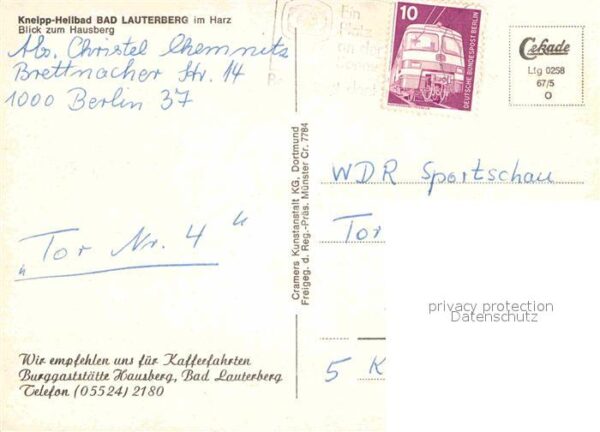 Kneipp-Heilbad BAD LAUTERBERG im Harz
Blick zum Hausberg
Abs. Christel Chemnitz
Brettnacher Str. 14
1000 Berlin 37
Ein
10
DEUTSCHE BUNDESPOST BERLIN
Cekade
Ltg 0258
67/5
O
Cramers Kunstanstalt KG, Dortmund
Freigeg. d. Reg.-Präs. Münster Cr. 7784
WDR Sportschau
Tor
„Tor Nr. 4"
privacy protection
Datenschutz
5 K
Wir empfehlen uns für Kaffeefahrten
Burggaststätte Hausberg, Bad Lauterberg
Telefon (05524) 2180